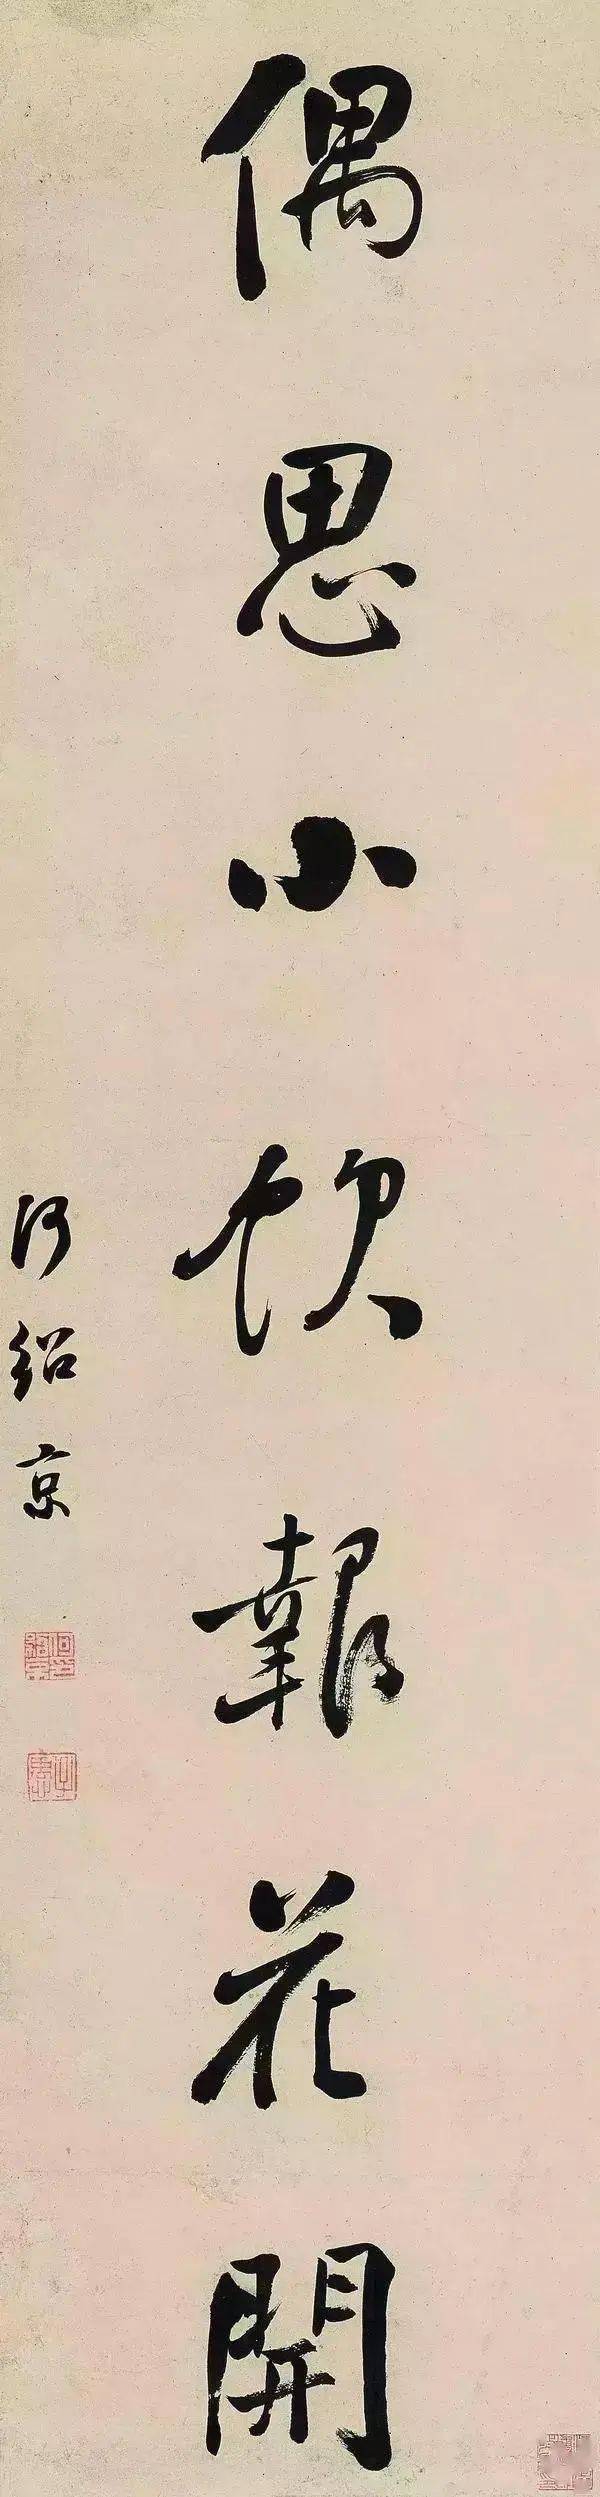 偶思小飲報花開
何紹京